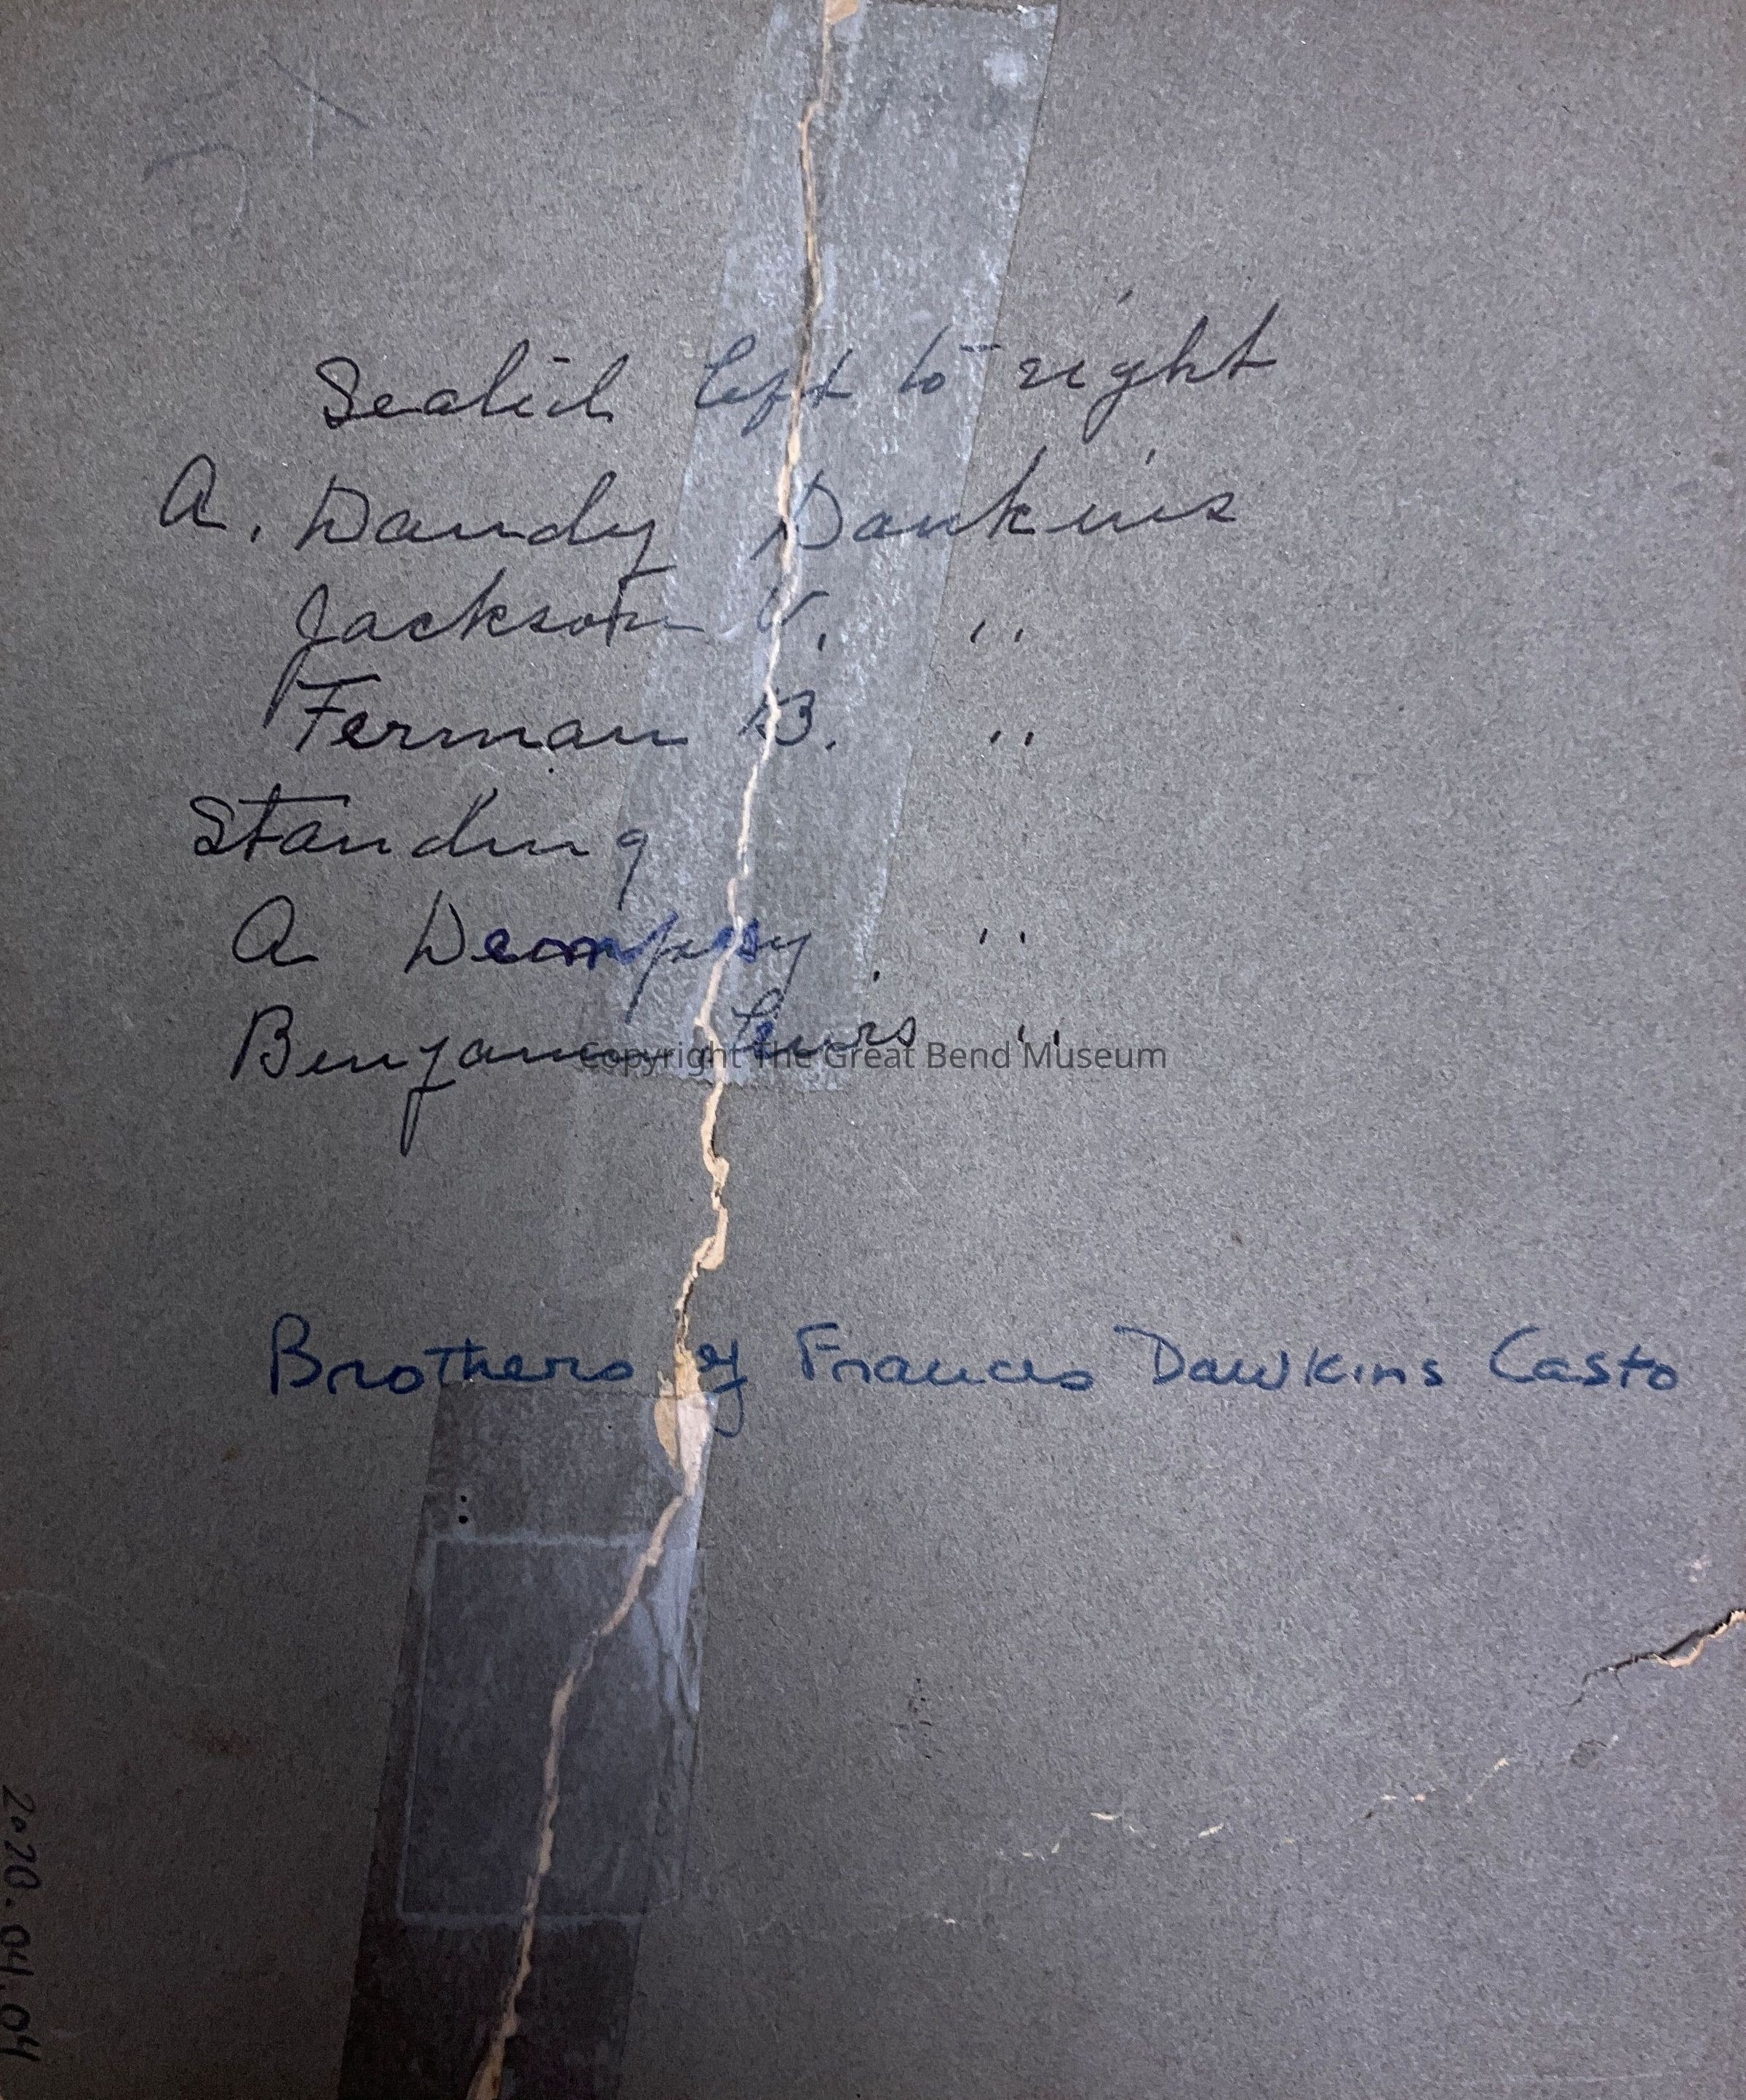 Seated left to right
A. Dandy Dawkins
Jackson V. ''
Ferman B. ''
Standing
A Dempsy . ''
Benjamin Lewis ''
Copyright The Great Bend Museum
Brothers of Frances Dawkins Casto
2020.04.04